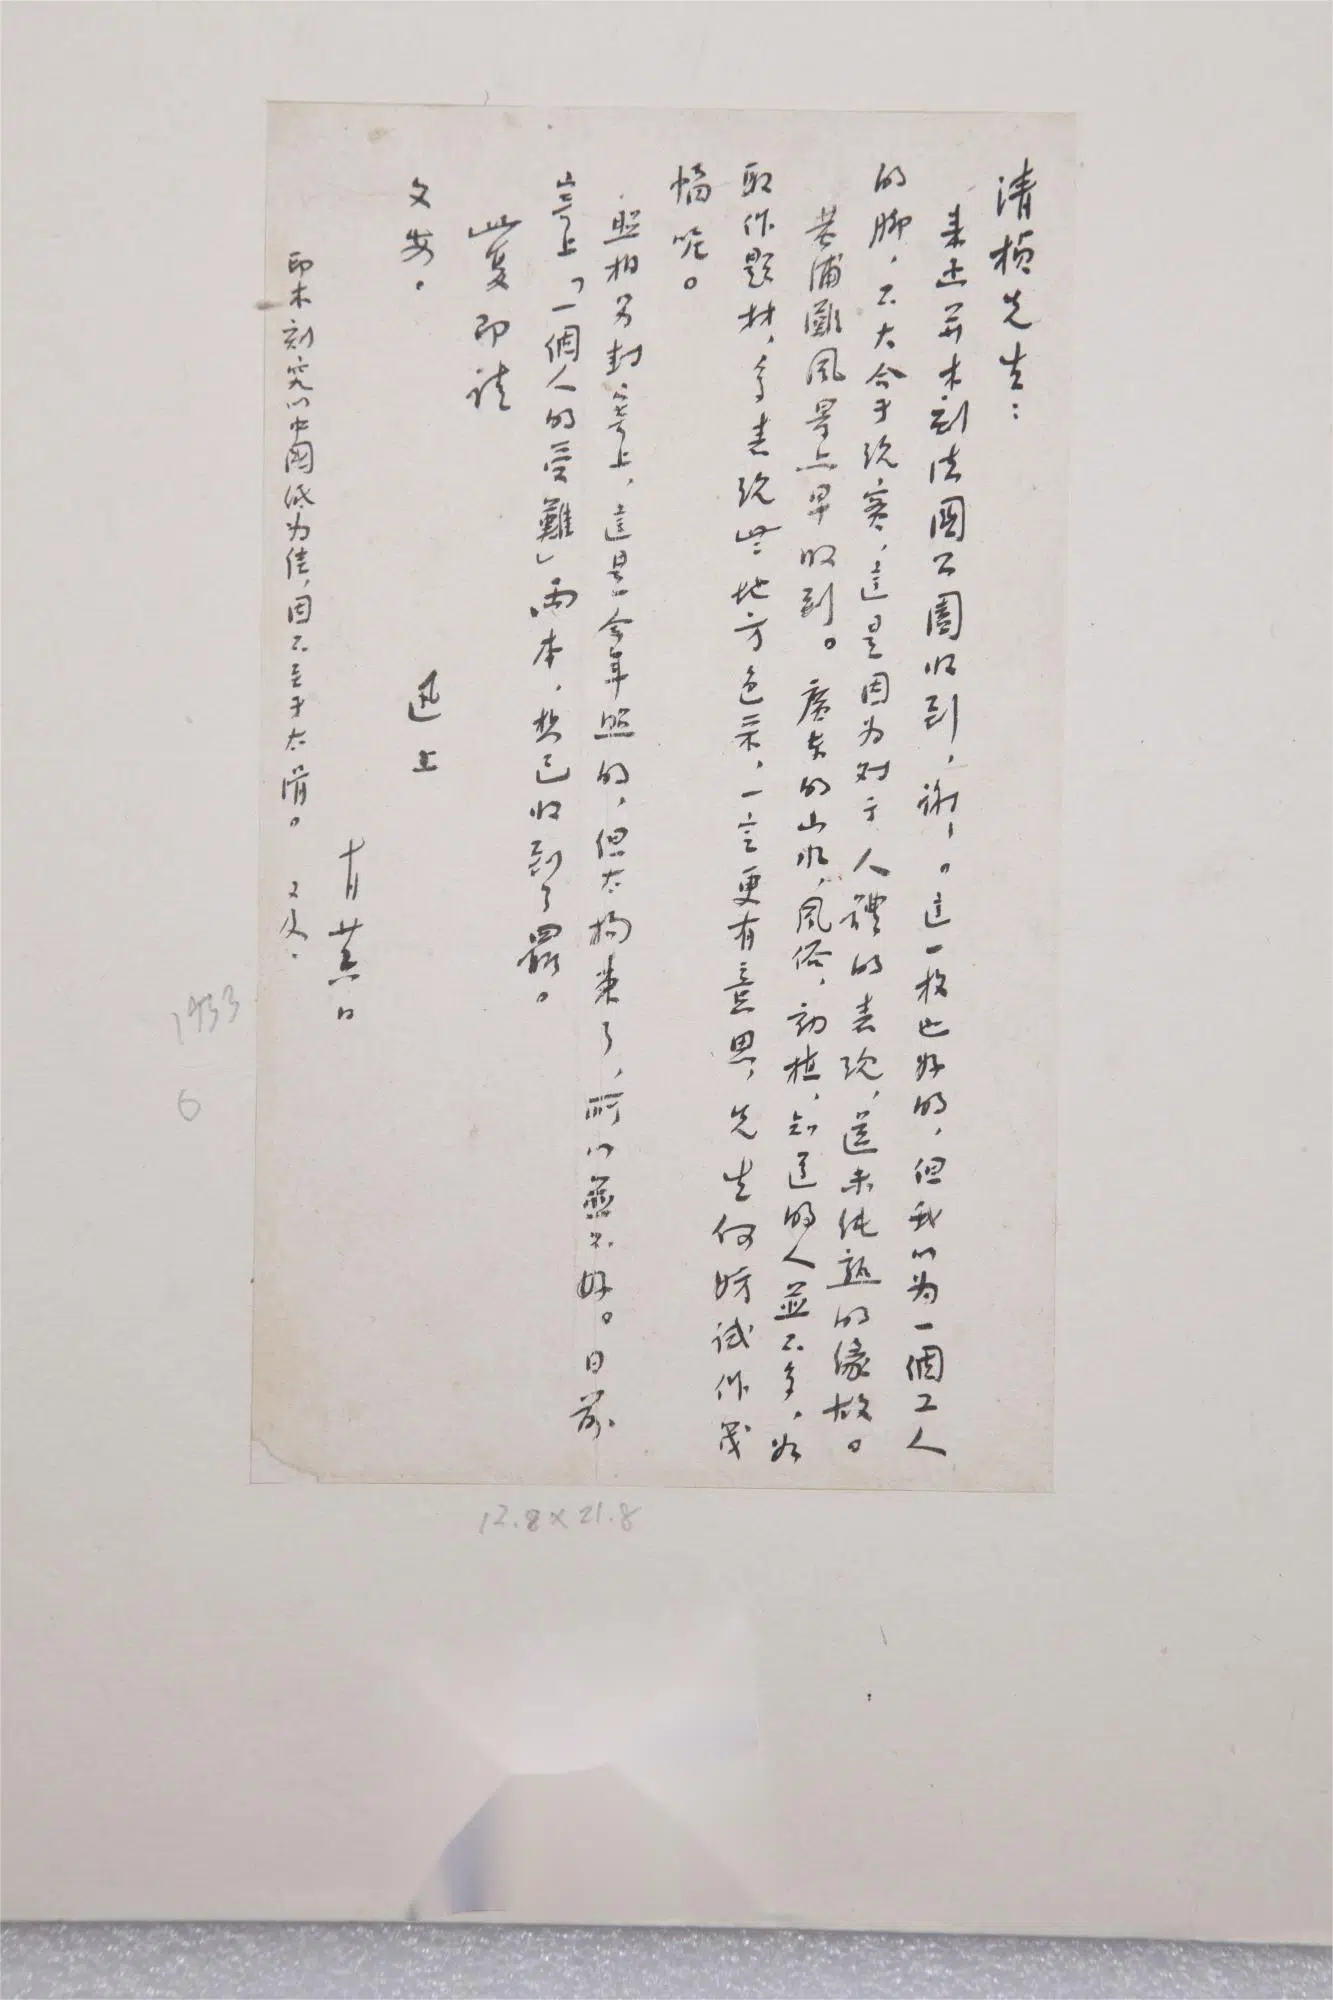 清楨先生：
来函并木刻法國公園收到，謝〻。這一枚也好的，但我以为一個工人
的脚，不大合于現實，這是因为对于人體的表現，還未純熟的缘故。
黄浦灘風景亦早收到。廣東的山水，風俗，動植，知道的人並不多，如
取作題材，多表現些地方色采，一定更有意思，先生何妨試作幾
幅呢。
照相另封寄上，這是今年照的，但太拘束了，所以並不好。日前
寄上「一個人的受難」兩本，想已收到了罷。
此复即請
文安。
迅上
十月廿六日
印木刻究以中國紙为佳，因不至于太滑。又及.
1933
6
12.8×21.8